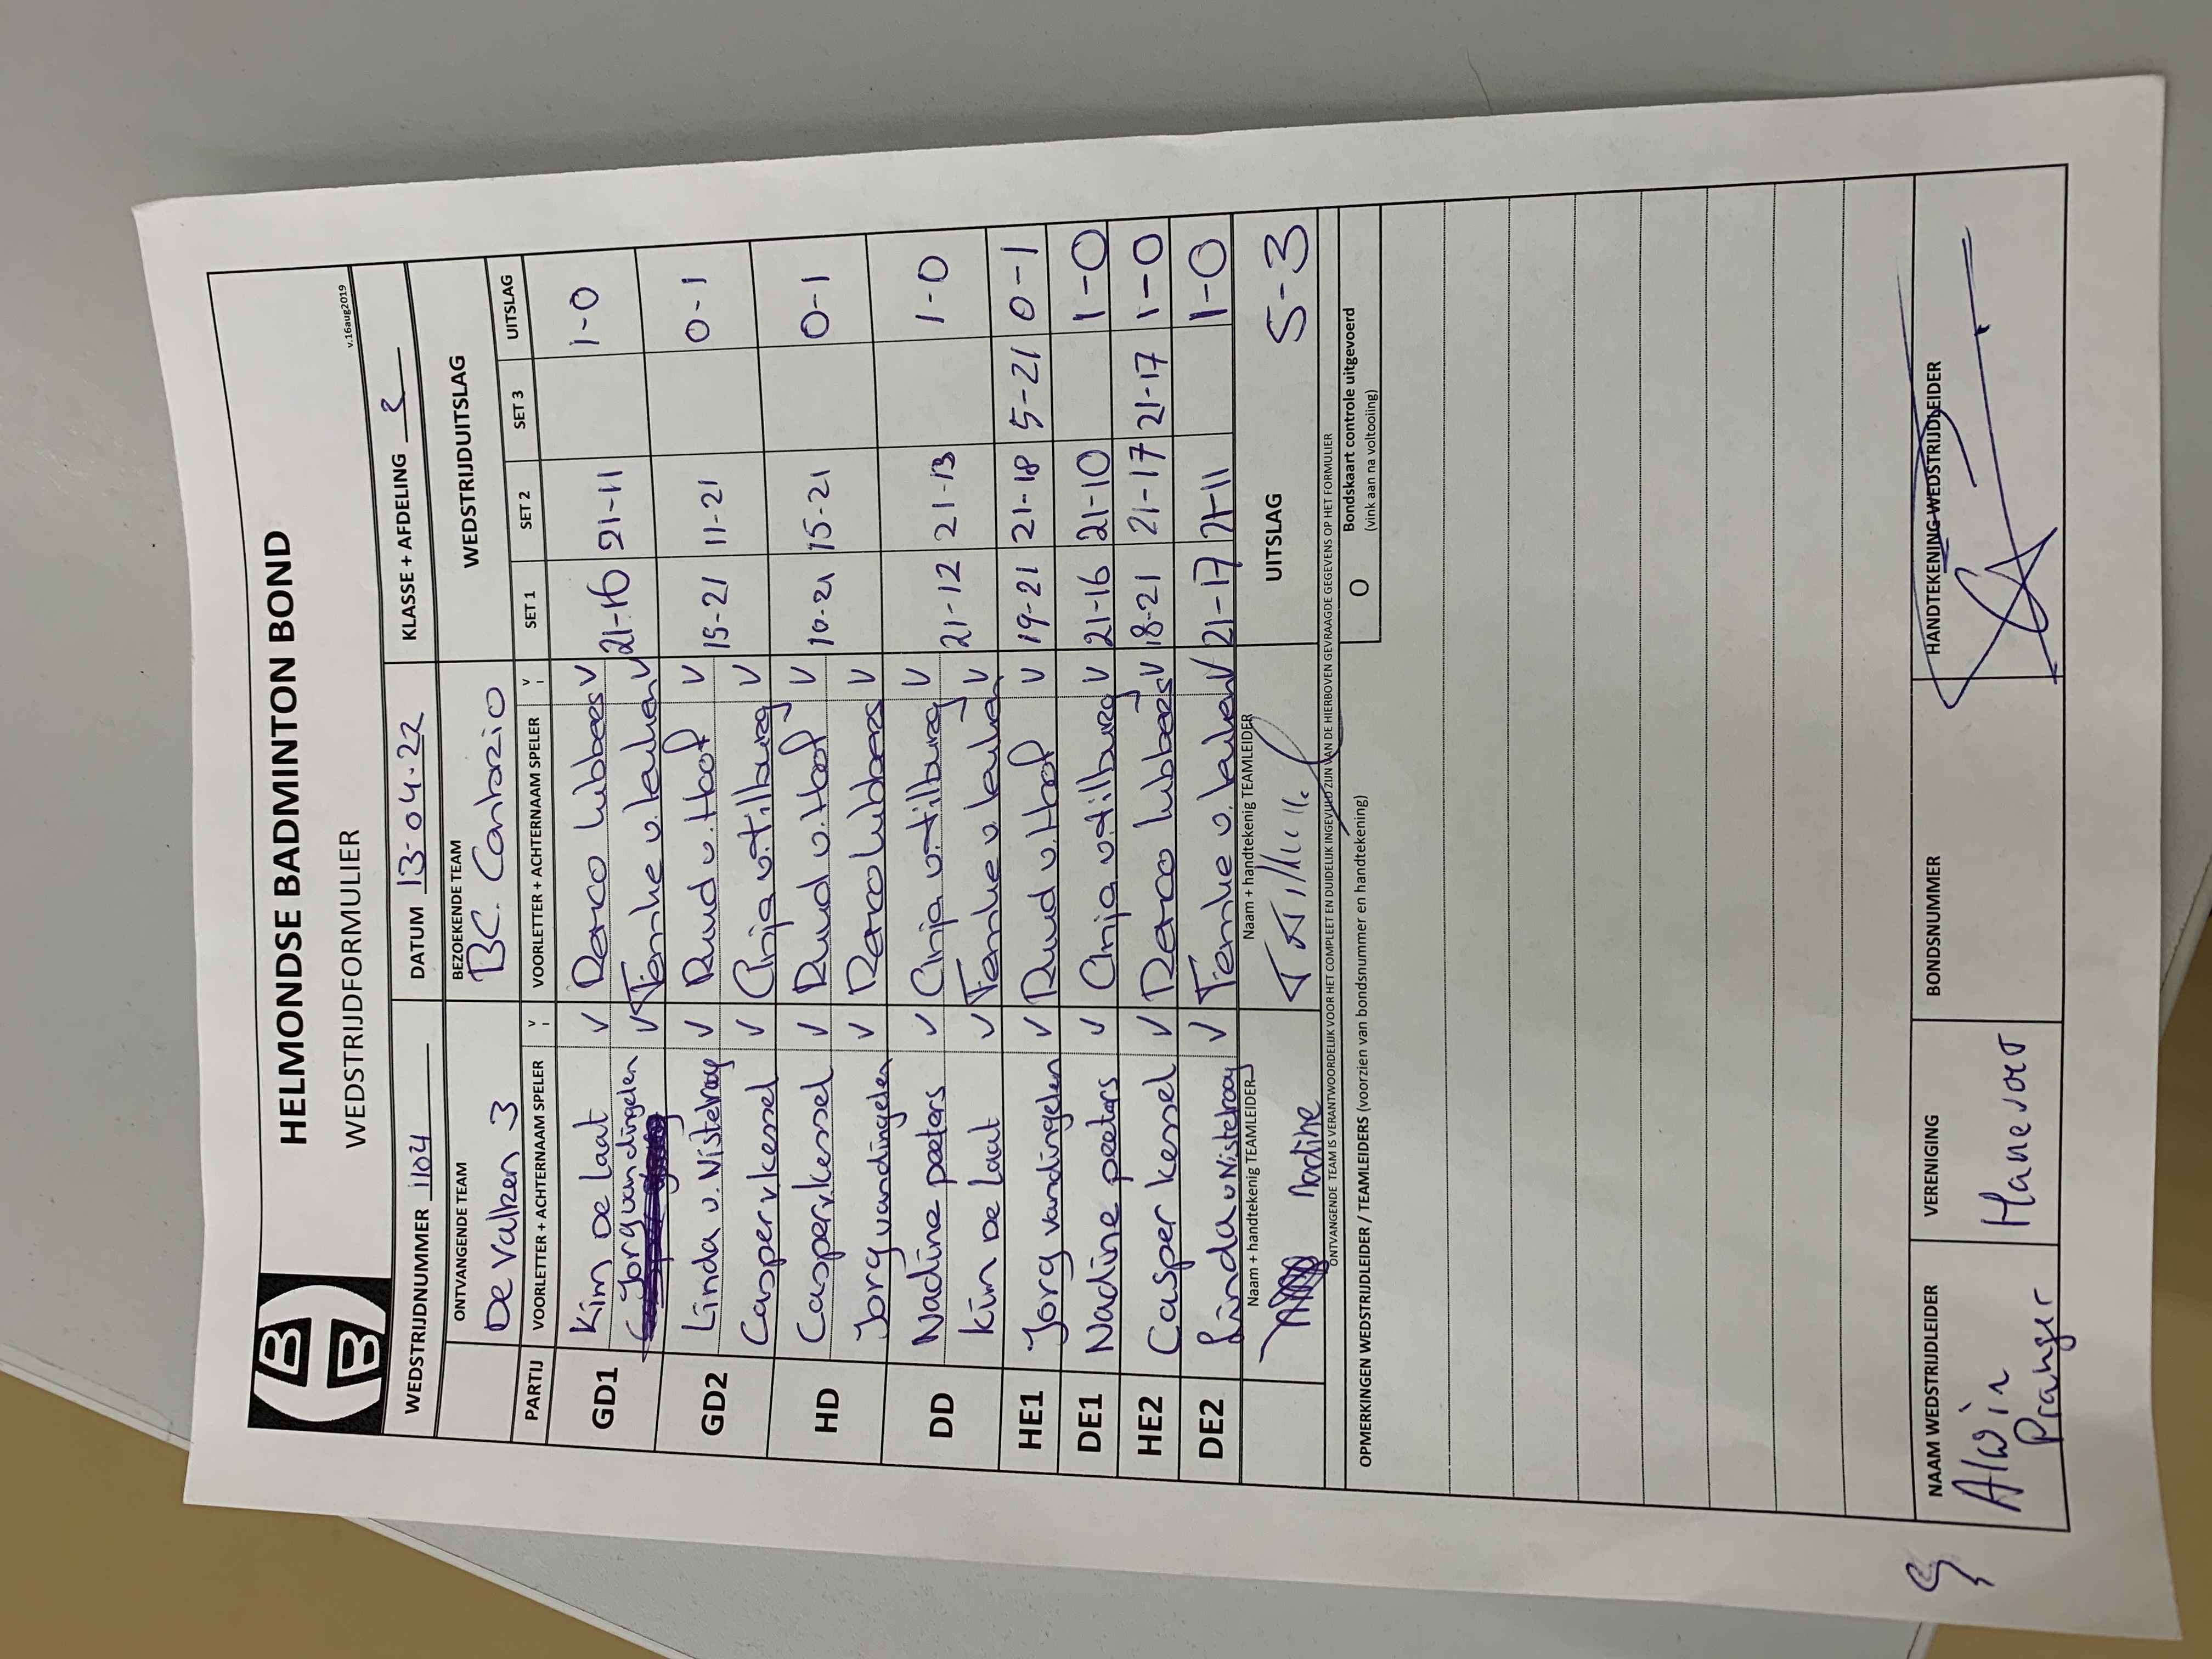 HELMONDSE BADMINTON BOND
WEDSTRIJDFORMULIER
v.16aug2019
WEDSTRIJDNUMMER 1104 DATUM 13-04-22 KLASSE + AFDELING 2
ONTVANGENDE TEAM BEZOEKENDE TEAM WEDSTRIJDUITSLAG
De Valken 3 BC. Contazio
PARTIJ VOORLETTER + ACHTERNAAM SPELER V VOORLETTER + ACHTERNAAM SPELER V SET 1 SET 2 SET 3 UITSLAG
GD1 Kim De Laat V Derco Lubbers V 21-16 21-11 1-0
Jorg vandingelen V Femke v. V
GD2 Linda v. Nistelrooy V Ruud v. Hoof V 15-21 11-21 0-1
Casper v kessel V Anja v. Tilburg V
HD Casper v. kessel V Ruud v. Hoof V 10-21 15-21 0-1
Jorg vandingelen V Derco Lubbers V
DD Nadine peeters V Anja v. Tilburg V 21-12 21-13 1-0
Kim De Laat V Femke v. V
HE1 Jorg vandingelen V Ruud v. Hoof V 19-21 21-18 5-21 0-1
DE1 Nadine peeters V Anja v Tilburg V 21-16 21-10 1-0
HE2 Casper v kessel V Derco Lubbers V 18-21 21-17 21-17 1-0
DE2 Linda v Nistelrooy V Femke v. V 21-17 21-11 1-0
Naam + handtekenig TEAMLEIDER Naam + handtekenig TEAMLEIDER UITSLAG 5-3
Nadine
ONTVANGENDE TEAM IS VERANTWOORDELIJK VOOR HET COMPLEET EN DUIDELIJK INGEVULD ZIJN VAN DE HIERBOVEN GEVRAAGDE GEGEVENS OP HET FORMULIER
OPMERKINGEN WEDSTRIJDLEIDER / TEAMLEIDERS (voorzien van bondsnummer en handtekening)
O Bondskaart controle uitgevoerd
(vink aan na voltooiing)
NAAM WEDSTRIJDLEIDER VERENIGING BONDSNUMMER HANDTEKENING WEDSTRIJDLEIDER
Alwin Hanevoet
Pranger